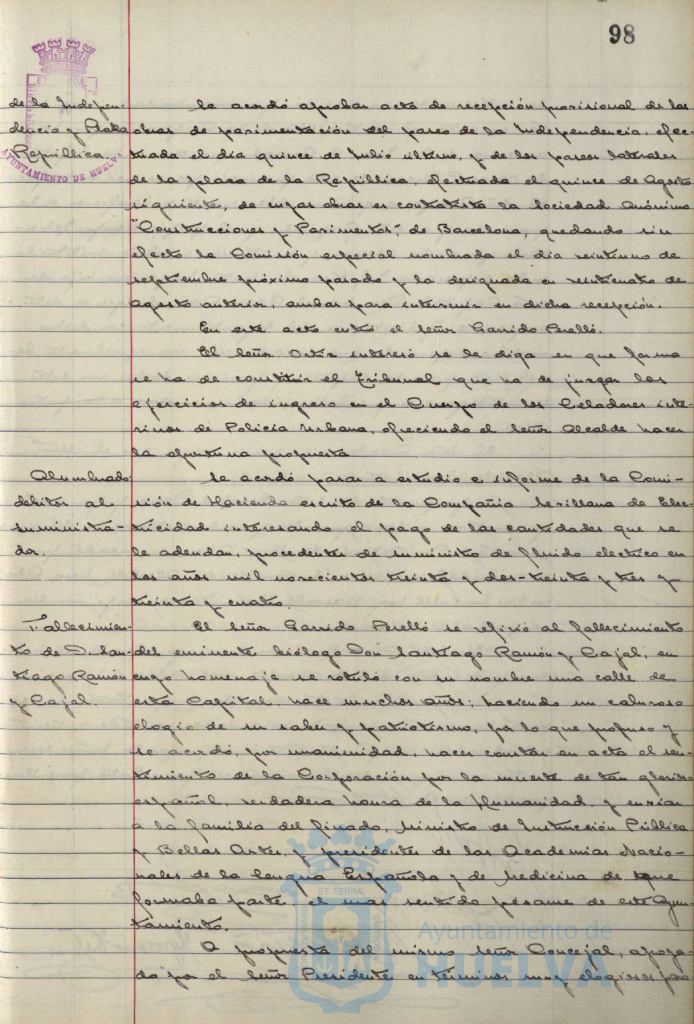 98
AYUNTAMIENTO DE HUELVA
de la Indepen-
dencia y Plaza
República.
Se acordó aprobar acta de recepción provisional de las
obras de pavimentación del paseo de la Independencia, efec-
tuada el día quince de Julio último, y de los paseos laterales
de la plaza de la República, efectuada el quince de Agosto
siguiente, de cuyas obras es contratista la Sociedad Anónima
"Construcciones y Pavimentos", de Barcelona, quedando sin
efecto la Comisión especial nombrada el día veintiuno de
septiembre próximo pasado y la designada en veinticuatro de
Agosto anterior, ambas para intervenir en dicha recepción.
En este acto entró el señor Garrido Perelló.
El señor Ortiz interesó se le diga en que forma
se ha de constituir el Tribunal que ha de juzgar los
ejercicios de ingreso en el Cuerpo de los Celadores inte-
rinos de Policía Urbana, ofreciendo el señor Alcalde hacer
la oportuna propuesta
Alumbrado
débitos al
suministra-
dor.
Se acordó pasar a estudio e informe de la Comi-
sión de Hacienda escrito de la Compañia Sevillana de Elec-
tricidad interesando el pago de las cantidades que se
le adeudan, procedentes de suministro de fluido electrico en
los años mil novecientos treinta y dos-treinta y tres y
treinta y cuatro.
Fallecimien-
to de D. San-
tiago Ramón
y Cajal.
El señor Garrido Perelló se refirió al fallecimiento
del eminente biólogo Don Santiago Ramón y Cajal, en
cuyo homenaje se rotuló con su nombre una calle de
esta Capital, hace muchos años; haciendo un caluroso
elogio de su saber y patriotismo, por lo que propuso y
se acordó, por unanimidad, hacer constar en acta el sen-
timiento de la Corporación por la muerte de tan glorioso
español, verdadera honra de la Humanidad, y enviar
a la familia del finado, Ministro de Instrucción Pública
y Bellas Artes, y presidentes de las Academias Nacio-
nales de la Lengua Española y de Medicina de que
formaba parte, el mas sentido pésame de este Ayun-
tamiento.
A propuesta del mismo señor Concejal, apoya-
do por el señor Presidente en términos muy elogiosos para
Ayuntamiento de
HUELVA